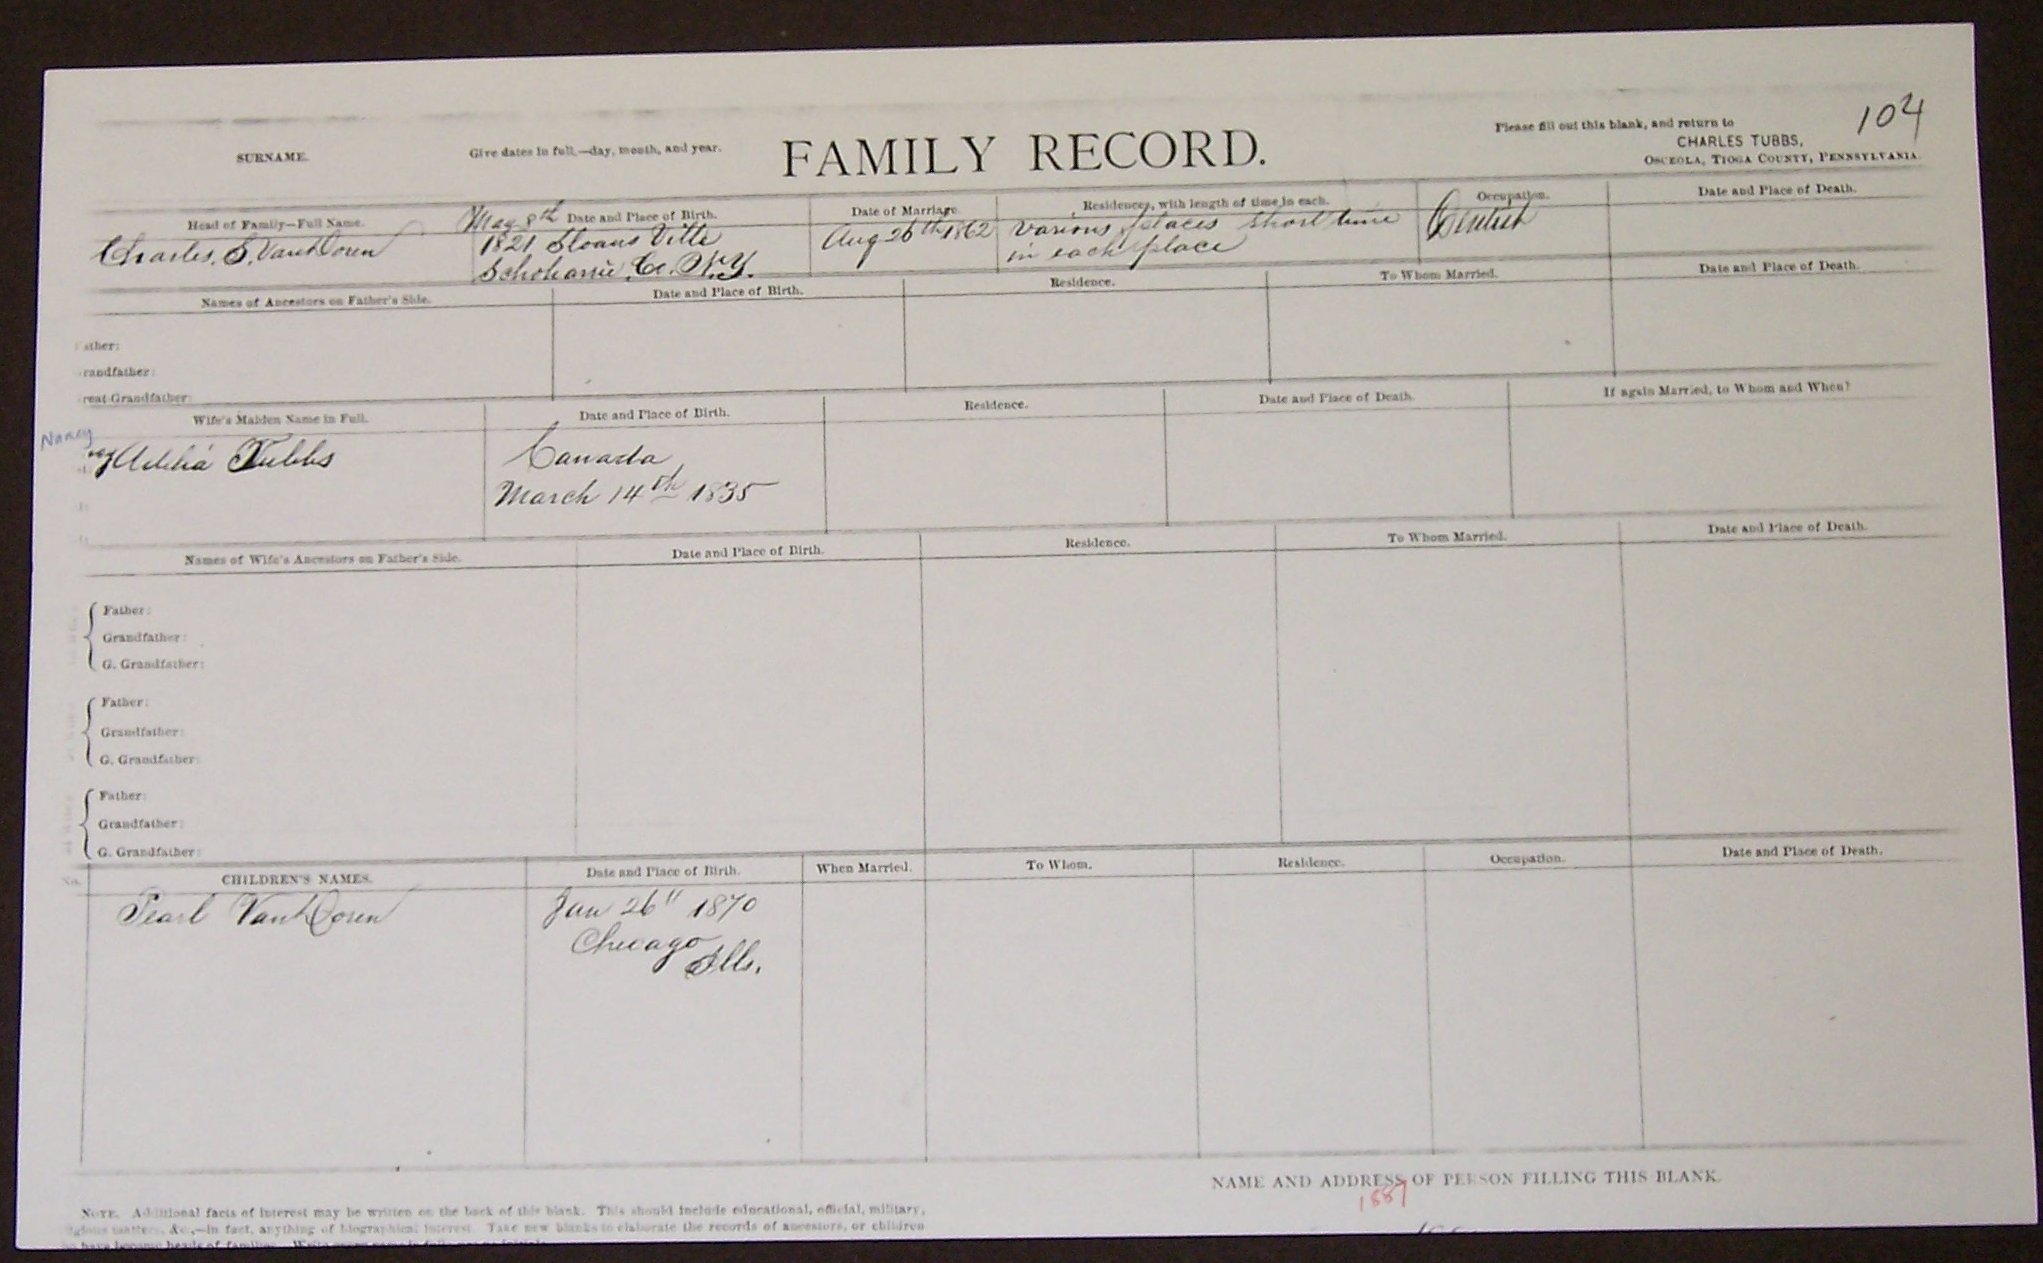 SURNAME.
Give dates in full,—day, month, and year.
FAMILY RECORD.
Please fill out this blank, and return to
CHARLES TUBBS,
OSCEOLA, TIOGA COUNTY, PENNSYLVANIA.
104
Head of Family—Full Name.
Date and Place of Birth.
Date of Marriage.
Residences, with length of time in each.
Occupation.
Date and Place of Death.
Charles. S. VanDoren
May 8th
1821 Sloans Ville
Schoharie Co. N.Y.
Aug 26th 1862
Various places short time
in each place
Dentist
Names of Ancestors on Father's Side.
Date and Place of Birth.
Residence.
To Whom Married.
Date and Place of Death.
ather:
randfather:
reat Grandfather:
Wife's Maiden Name in Full.
Date and Place of Birth.
Residence.
Date and Place of Death.
If again Married, to Whom and When?
Nancy
Tubbs
Canada
March 14th 1835
Names of Wife's Ancestors on Father's Side.
Date and Place of Birth.
Residence.
To Whom Married.
Date and Place of Death.
Father:
Grandfather:
G. Grandfather:
Father:
Grandfather:
G. Grandfather:
Father:
Grandfather:
G. Grandfather:
No.
CHILDREN'S NAMES.
Date and Place of Birth.
When Married.
To Whom.
Residence.
Occupation.
Date and Place of Death.
Pearl VanDoren
Jan 26" 1870
Chicago
Ills.
NAME AND ADDRESS OF PERSON FILLING THIS BLANK.
1887
NOTE. Additional facts of interest may be written on the back of this blank. This should include educational, official, military,
matters, &c.,—in fact, anything of biographical interest. Take new blanks to elaborate the records of ancestors, or children
have become heads of families.